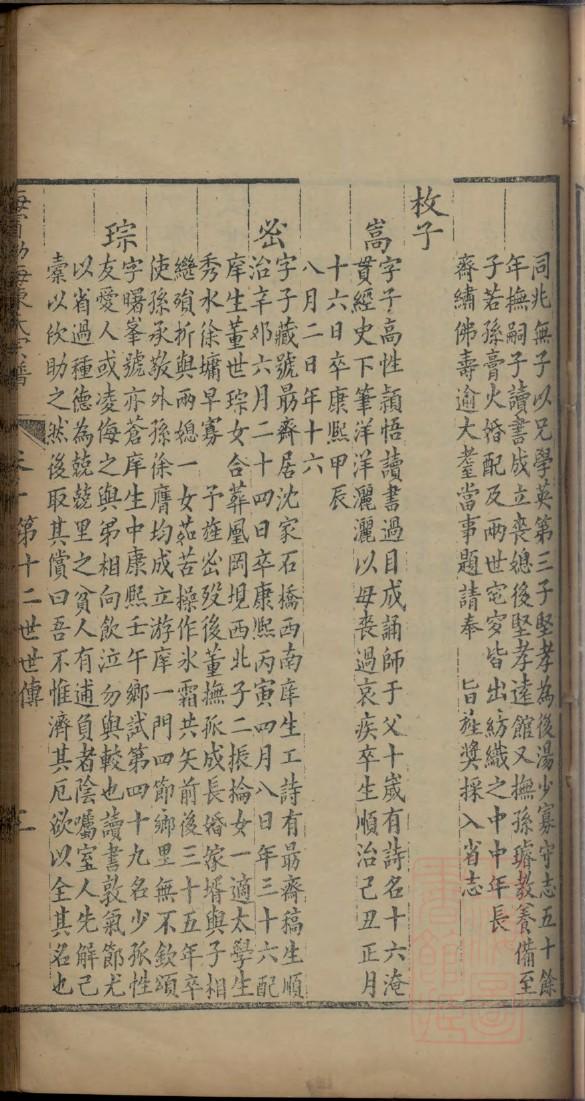 同兆無子以兄學英第三子堅孝為後湯少寡守志五十餘
年撫嗣子讀書成立喪媳後堅孝遠館又撫孫璿教養備至
子若孫膏火婚配及兩世窀穸皆出紡織之中中年長
齋繡佛壽逾大耋當事題請奉 旨旌獎採入省志
枚子
嵩
字子高性穎悟讀書過目成誦師于父十歲有詩名十六淹
貫經史下筆洋洋灑灑以母喪過哀疾卒生順治己丑正月
十六日卒康熙甲辰
八月二日年十六
宓
字子藏號最齊居沈家石橋西南庠生工詩有最齊稿生順
治辛卯六月二十四日卒康熙丙寅四月八日年三十六配
庠生董世琮女合葬凰岡垷西北子二振掄女一適太學生
秀水徐墉早寡 予旌宓歿後董撫孤成長婚嫁壻與子相
繼殞折與兩媳一女茹苦操作氷霜共矢前後三十五年卒
使孫承敬外孫徐膺均成立游庠一門四節鄉里無不欽頌
琮
字曙峯號亦蒼庠生中康熙壬午鄉試第四十九名少孤性
友愛人或凌侮之與弟相向飲泣勿與較也讀書敦氣節尤
以省過種德為兢兢里之貧人有逋負者陰囑室人先解己
橐以佽助之然後取其償曰吾不惟濟其厄欲以全其名也
海寧渤海陳氏宗譜
第十二世世傳